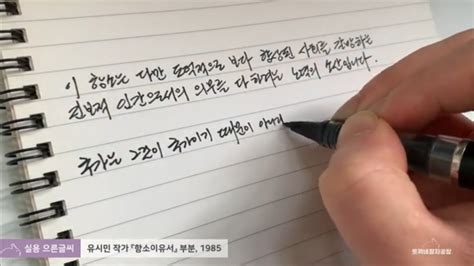 이 항소는 다만 도덕적으로 보다 향상된 사회를 갈망하는
진보적 인간으로서의 의무를 다하려는 노력의 소산입니다.
국가는 그것이 국가이기 때문이 아니라
실용 으른글씨
유시민 작가 『항소이유서』 부분, 1985